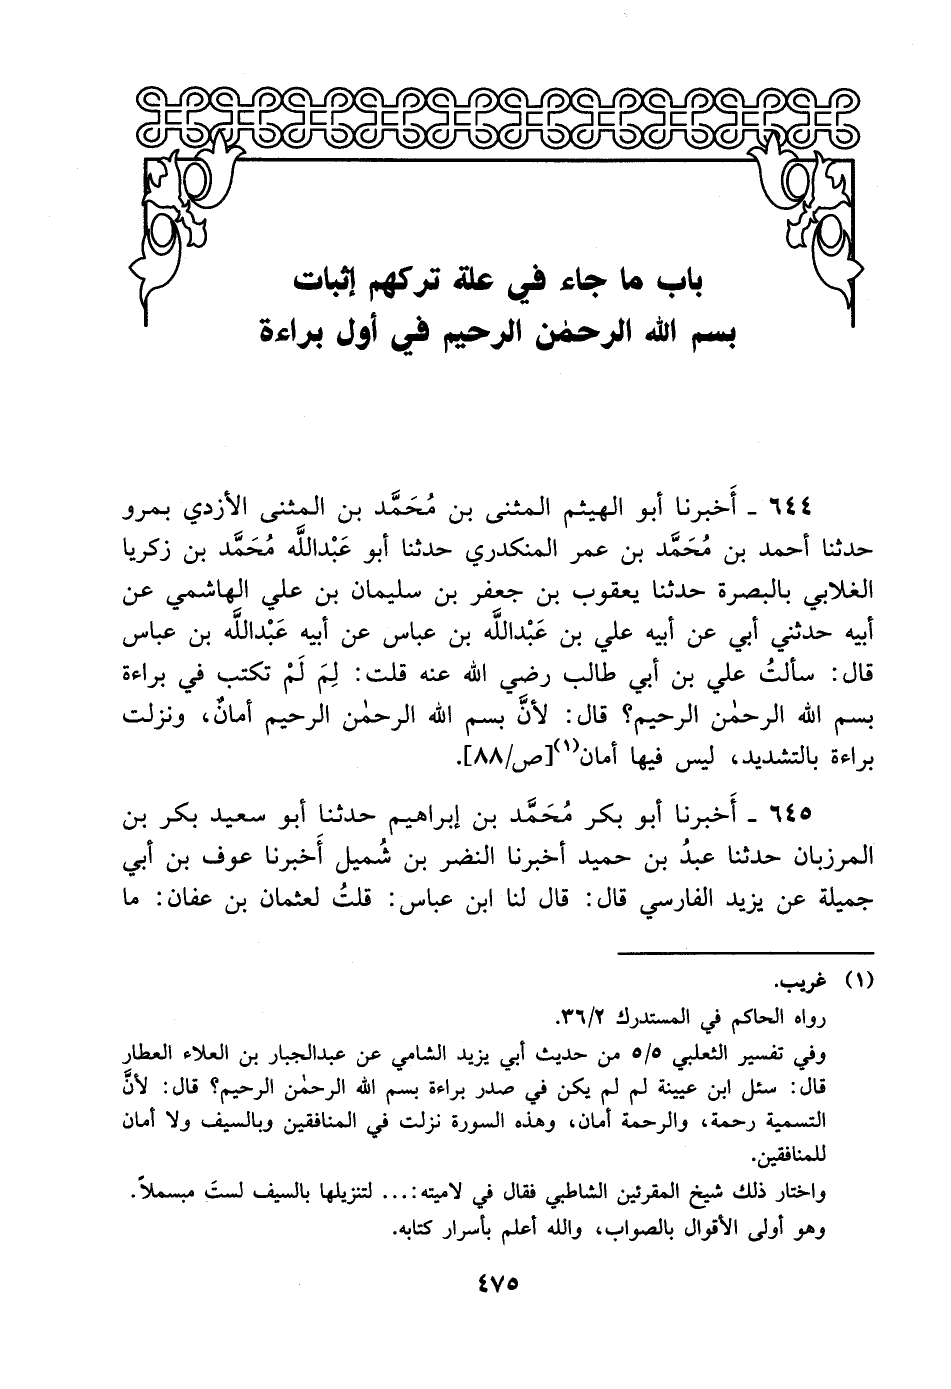 باب ما جاء في علة تركهم إثبات
بسم الله الرحمٰن الرحيم في أول براءة
٦٤٤ ـ أَخبرنا أبو الهيثم المثنى بن مُحَمَّد بن المثنى الأزدي بمرو
حدثنا أحمد بن مُحَمَّد بن عمر المنكدري حدثنا أبو عَبْداللَّه مُحَمَّد بن زكريا
الغلابي بالبصرة حدثنا يعقوب بن جعفر بن سليمان بن علي الهاشمي عن
أبيه حدثني أبي عن أبيه علي بن عَبْداللَّه بن عباس عن أبيه عَبْداللَّه بن عباس
قال: سألتُ علي بن أبي طالب رضي الله عنه قلت: لِمَ لَمْ تكتب في براءة
بسم الله الرحمٰن الرحيم؟ قال: لأنَّ بسم الله الرحمٰن الرحيم أمانٌ، ونزلت
براءة بالتشديد، ليس فيها أمان(١)[ص/٨٨].
٦٤٥ ـ أَخبرنا أبو بكر مُحَمَّد بن إبراهيم حدثنا أبو سعيد بكر بن
المرزبان حدثنا عبدُ بن حميد أخبرنا النضر بن شُميل أَخبرنا عوف بن أبي
جميلة عن يزيد الفارسي قال: قال لنا ابن عباس: قلتُ لعثمان بن عفان: ما
(١) غريب.
رواه الحاكم في المستدرك ٣٦/٢.
وفي تفسير الثعلبي ٥/٥ من حديث أبي يزيد الشامي عن عبدالجبار بن العلاء العطار
قال: سئل ابن عيينة لم لم يكن في صدر براءة بسم الله الرحمٰن الرحيم؟ قال: لأنَّ
التسمية رحمة، والرحمة أمان، وهذه السورة نزلت في المنافقين وبالسيف ولا أمان
للمنافقين.
واختار ذلك شيخ المقرئين الشاطبي فقال في لاميته:... لتنزيلها بالسيف لستَ مبسملاً.
وهو أولى الأقوال بالصواب، والله أعلم بأسرار كتابه.
٤٧٥